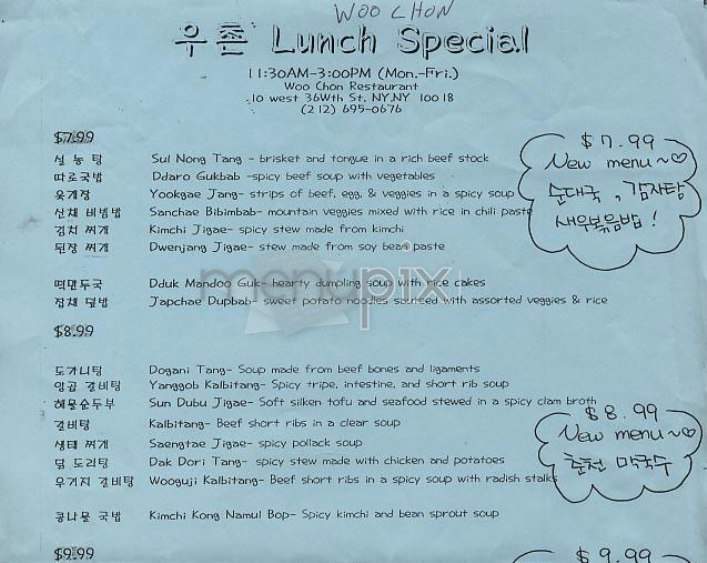 WOO CHON
우촌 Lunch Special
11:30AM-3:00PM (Mon.-Fri.)
Woo Chon Restaurant
10 west 36Wth St. NY,NY 10018
(212) 695-0676
$7.99
설농탕 Sul Nong Tang - brisket and tongue in a rich beef stock
따로국밥 Ddaro Gukbab -spicy beef soup with vegetables
육개장 Yookgae Jang- strips of beef, egg, & veggies in a spicy soup
산채 비빔밥 Sanchae Bibimbab- mountain veggies mixed with rice in chili paste
김치 찌개 Kimchi Jigae- spicy stew made from kimchi
된장 찌개 Dwenjang Jigae- stew made from soy bean paste
떡만두국 Dduk Mandoo Guk- hearty dumpling soup with rice cakes
잡채 덮밥 Japchae Dupbab- sweet potato noodles sauced with assorted veggies & rice
$7.99
New menu~♡
순대국, 감자탕
새우볶음밥!
menupix
$8.99
도가니탕 Dogani Tang- Soup made from beef bones and ligaments
양곰 갈비탕 Yanggob Kalbitang- Spicy tripe, intestine, and short rib soup
해물순두부 Sun Dubu Jigae- Soft silken tofu and seafood stewed in a spicy clam broth
갈비탕 Kalbitang- Beef short ribs in a clear soup
생태 찌개 Saengtae Jigae- spicy pollack soup
닭 도리탕 Dak Dori Tang- spicy stew made with chicken and potatoes
우거지 갈비탕 Wooguji Kalbitang- Beef short ribs in a spicy soup with radish stalks
콩나물 국밥 Kimchi Kong Namul Bop- Spicy kimchi and bean sprout soup
$8.99
New menu~♡
춘천 막국수
$9.99
$9.99